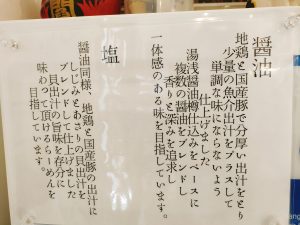 醤油
地鶏と国産豚で分厚い出汁をとり
少量の魚介出汁をプラスして
単調な味にならないよう
仕上げました
湯浅醤油樽仕込みをベースに
複数の醤油をブレンドし
香りと深みを追求し
一体感のある味を目指しています。
塩
醤油同様、地鶏と国産豚の出汁に
しじみとあさりの貝出汁を
ブレンドして仕上げました
貝出汁の旨味を存分に
味わって頂けるらーめんを
目指しています。
ang